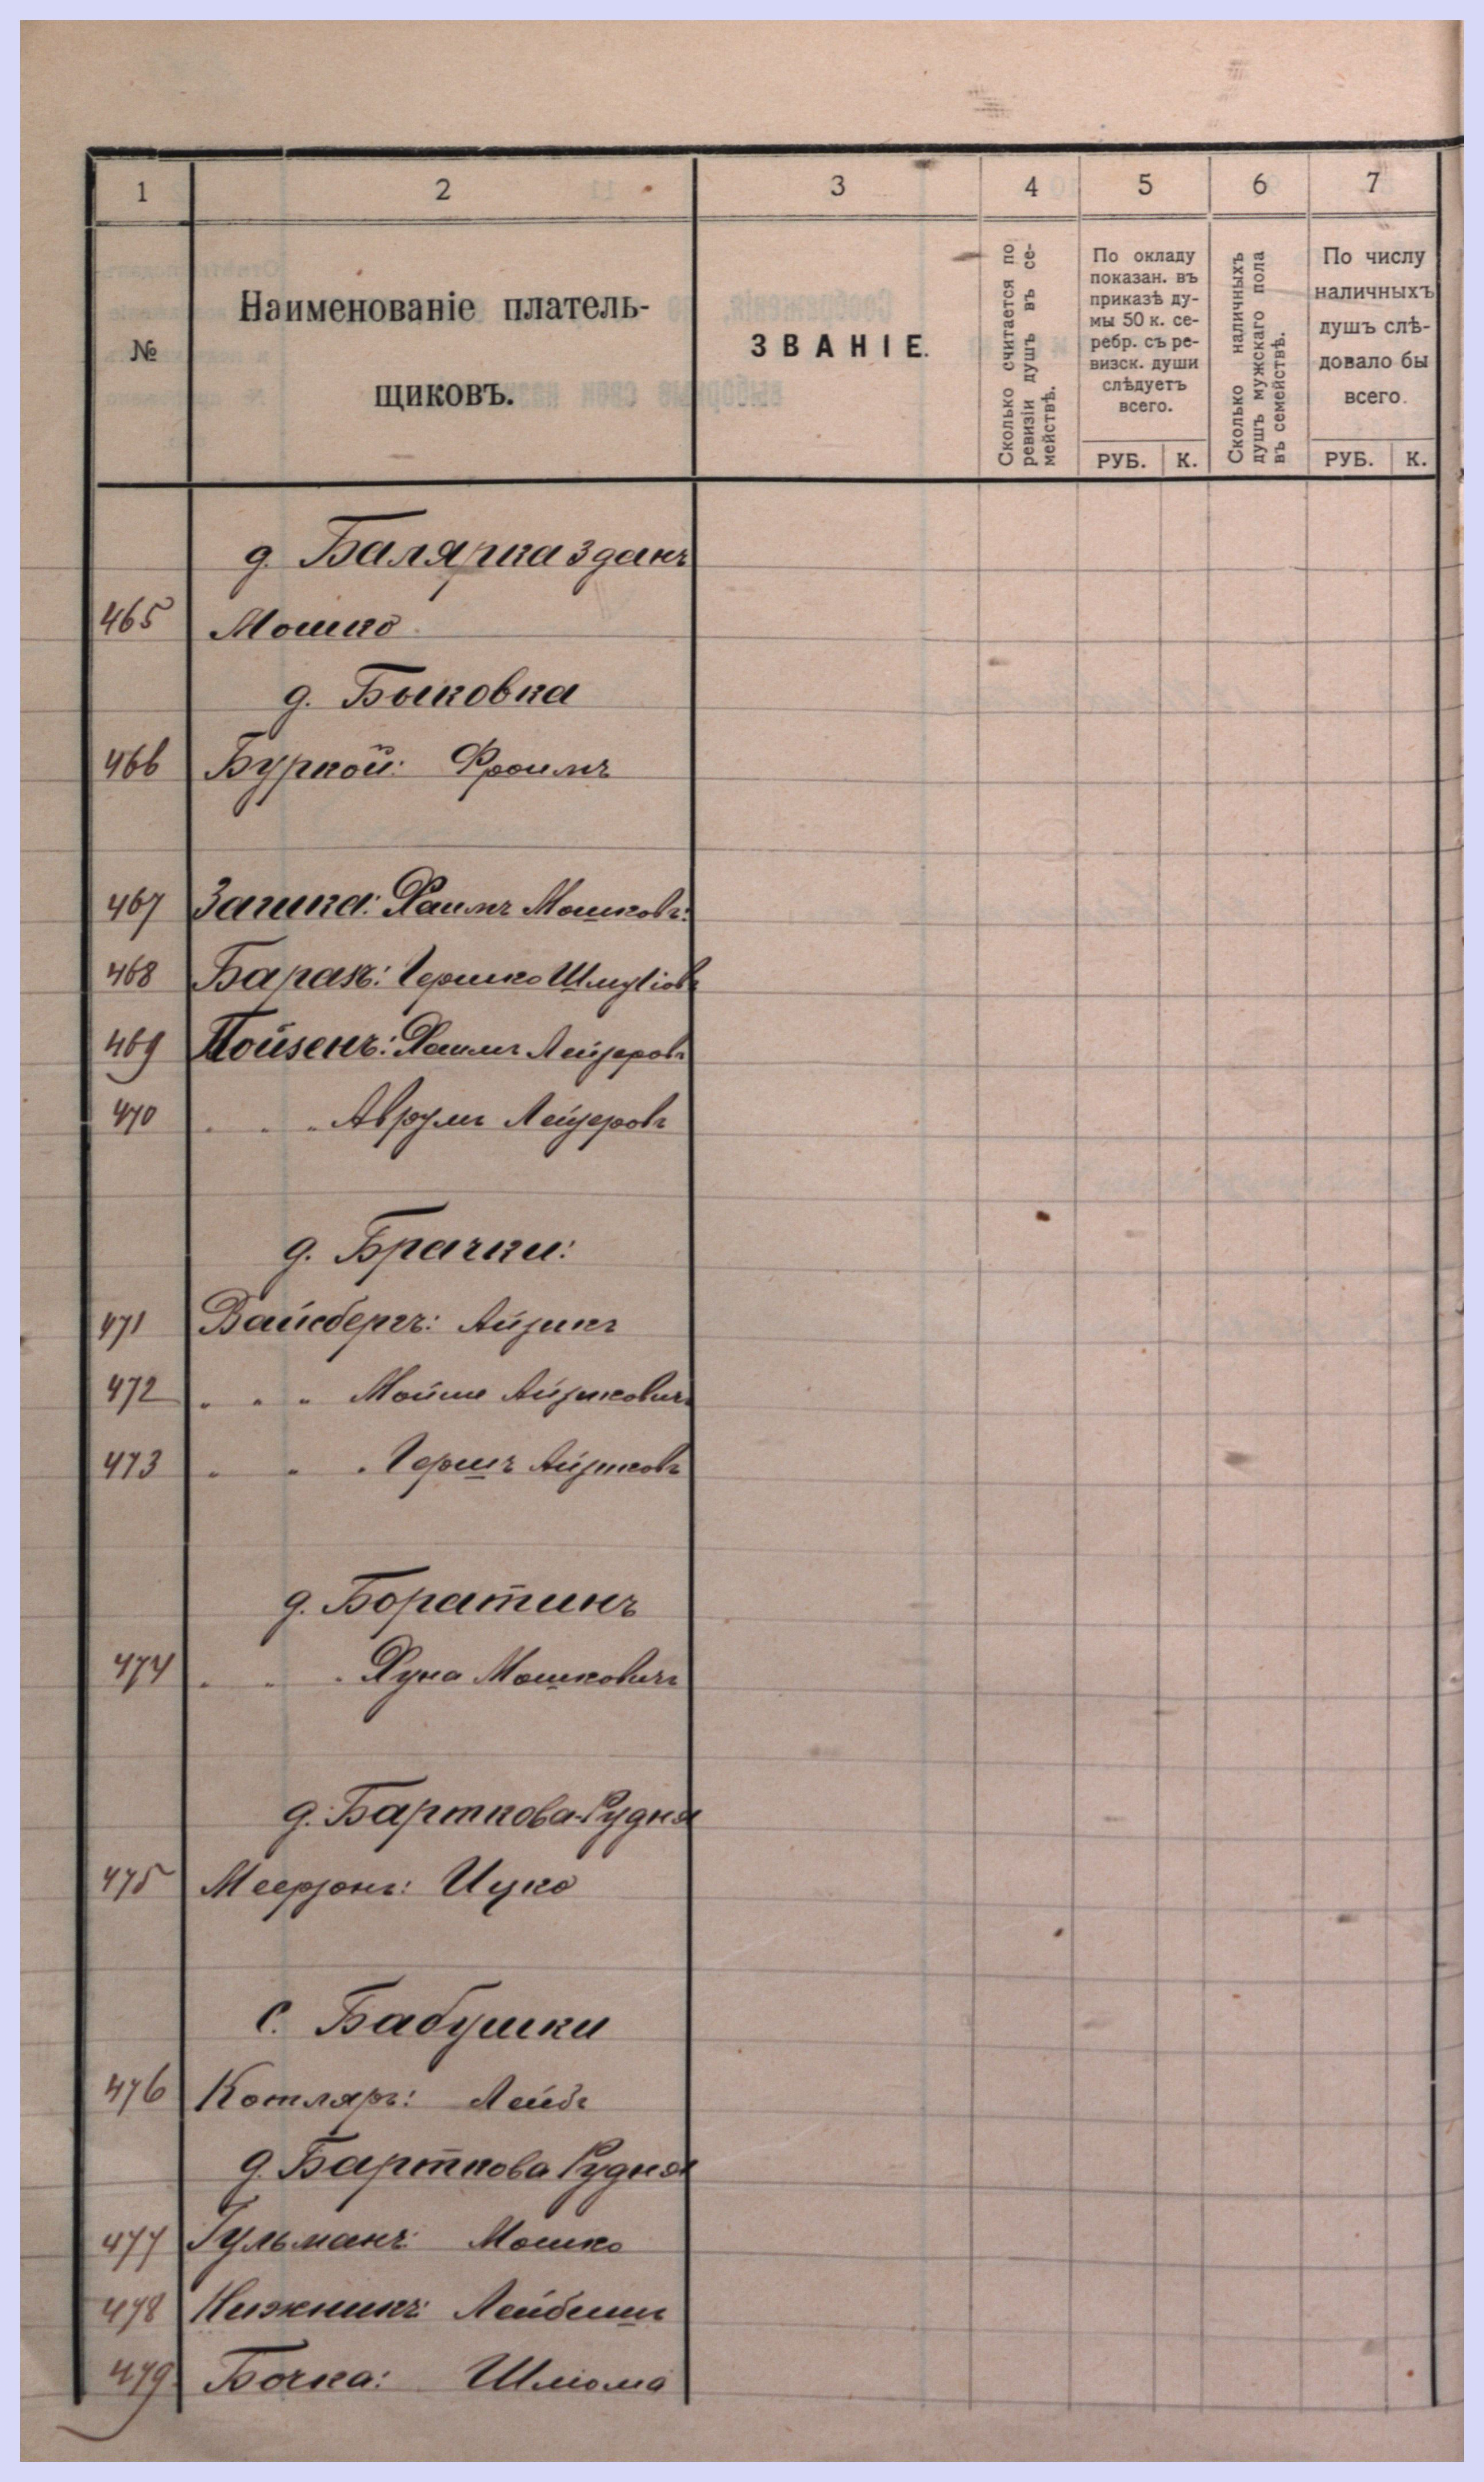 1 2 3 4 5 6 7
№
Наименованіе платель-
щиковъ.
ЗВАНІЕ.
Сколько считается по
ревизіи душъ въ се-
мействѣ.
По окладу
показан. въ
приказѣ ду-
мы 50 к. се-
ребр. съ ре-
визск. души
слѣдуетъ
всего.
РУБ. К.
Сколько наличныхъ
душъ мужскаго пола
въ семействѣ.
По числу
наличныхъ
душъ слѣ-
довало бы
всего.
РУБ. К.
д. Балярка зданъ
465 Мошко
д. Быковка
466 Буркой: Фроимъ
467 Загика: Хаимъ Мошковъ:
468 Баракъ: Гершко Шмуліовъ
469 Пойзенъ: Хаимъ Лейзеровъ
470 " " " Аврумъ Лейзеровъ
д. Брачки:
471 Вайсбергъ: Айзикъ
472 " " " Мойше Айзиковичъ
473 " " " Гершъ Айзиковъ
д. Боратинъ
474 " " " Хуна Мошковичъ
д. Барткова-Рудня
475 Меерзонъ: Ицко
с. Бабушки
476 Котляръ: Лейбъ
д. Барткова Рудня
477 Гульманъ: Мошко
478 Нижникъ: Лейбишъ
479 Бочка: Шліома